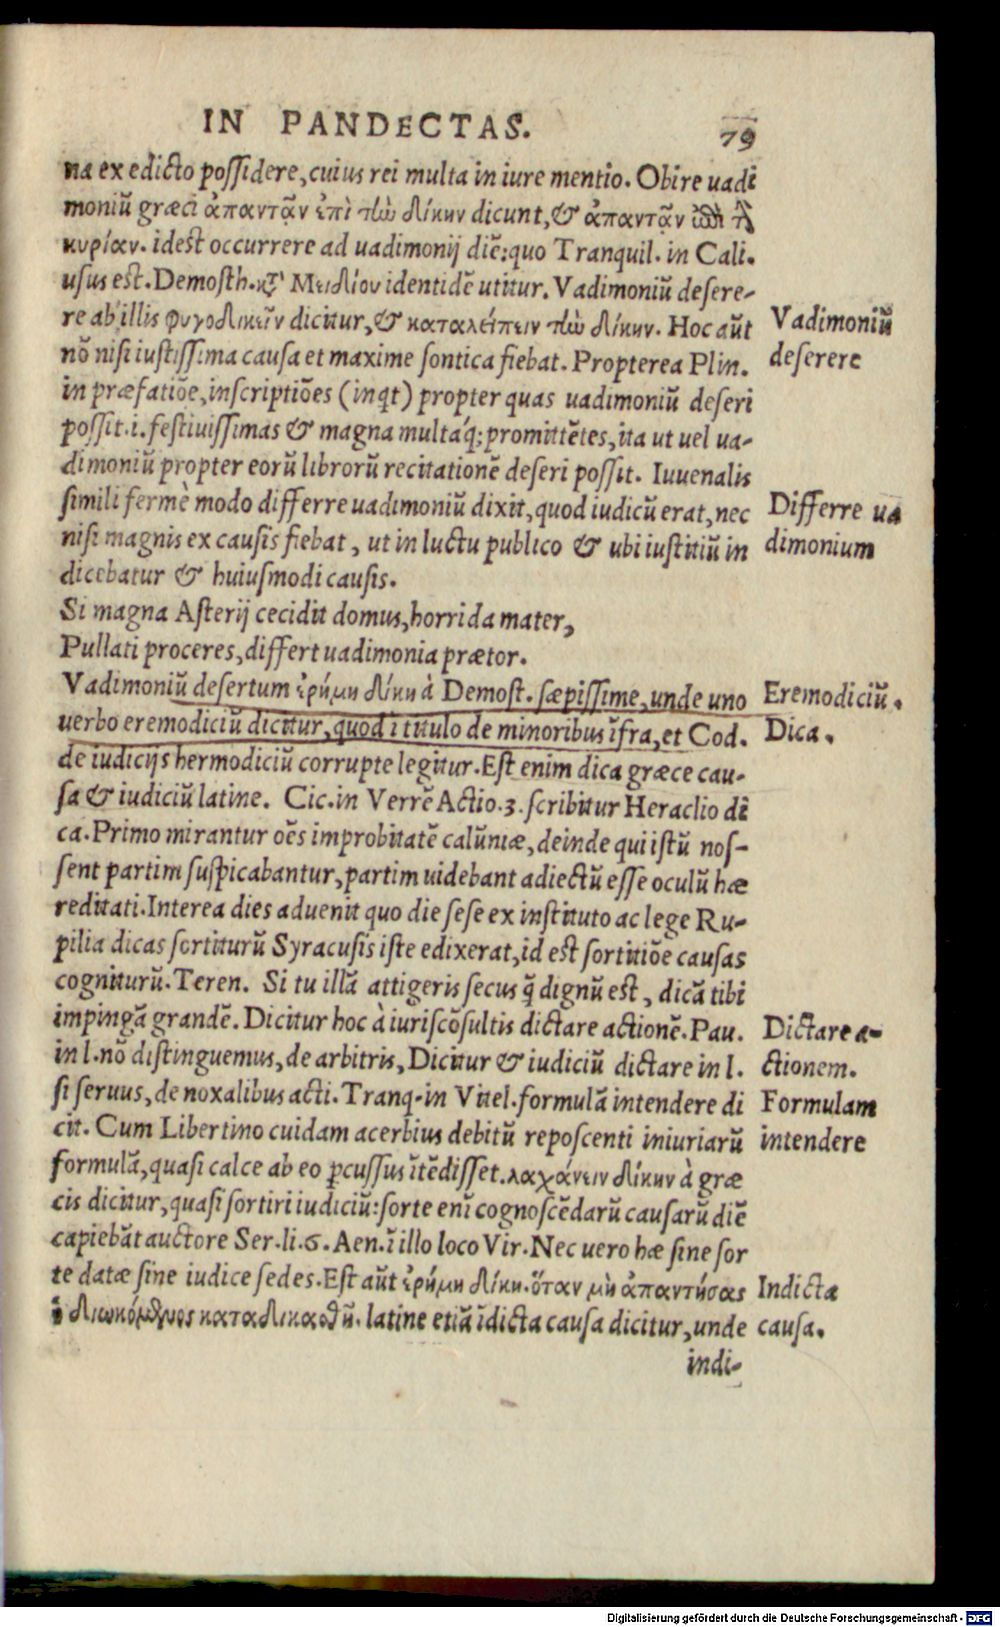 IN PANDECTAS.
79
na ex edicto possidere, cuius rei multa in iure mentio. Obire uadi
moniũ græci ἀπαντᾷν ἐπὶ τὼ δίκην dicunt, & ἀπαντᾷν
κυρίαν. idest occurrere ad uadimonij diẽ: quo Tranquil. in Cali.
usus est. Demosth. Μειδίου identidẽ utitur. Vadimoniũ desere-
re ab illis φυγοδικεῖν dicitur, & καταλείπειν τὼ δίκην. Hoc aũt
nõ nisi iustissima causa et maxime sontica fiebat. Propterea Plin.
in præfatiõe, inscriptiões (inqt) propter quas uadimoniũ deseri
possit .i. festiuissimas & magna multaq́; promittẽtes, ita ut uel ua-
dimoniũ propter eorũ librorũ recitationẽ deseri possit. Iuuenalis
simili fermè modo differre uadimoniũ dixit, quod iudicũ erat, nec
nisi magnis ex causis fiebat, ut in luctu publico & ubi iustitiũ in
dicebatur & huiusmodi causis.
Si magna Asterij cecidit domus, horrida mater,
Pullati proceres, differt uadimonia prætor.
Vadimoniũ desertum ἐρήμη δίκη à Demost. sæpissime, unde uno
uerbo eremodiciũ dicitur, quod ĩ titulo de minoribus ĩfra, et Cod.
de iudicijs hermodiciũ corrupte legitur. Est enim dica græce cau-
sa & iudiciũ latine. Cic. in Verrẽ Actio. 3. scribitur Heraclio di
ca. Primo mirantur oẽs improbitatẽ calũniæ, deinde qui istũ nos-
sent partim suspicabantur, partim uidebant adiectũ esse oculũ hæ
reditati. Interea dies aduenit quo die sese ex instituto ac lege Ru-
pilia dicas sortiturũ Syracusis iste edixerat, id est sortitiõe causas
cogniturũ. Teren. Si tu illã attigeris secus q̃ dignũ est, dicã tibi
impingã grandẽ. Dicitur hoc à iuriscõsultis dictare actionẽ. Pau.
in l. nõ distinguemus, de arbitris, Dicitur & iudiciũ dictare in l.
si seruus, de noxalibus acti. Tranq. in Vitel. formulã intendere di
cit. Cum Libertino cuidam acerbius debitũ reposcenti iniuriarũ
formulã, quasi calce ab eo ꝑcussus ĩtẽdisset. λαχάνειν δίκην à græ
cis dicitur, quasi sortiri iudiciũ: sorte enĩ cognoscẽdarũ causarũ diẽ
capiebãt auctore Ser. li. 6. Aen. ĩ illo loco Vir. Nec uero hæ sine sor
te datæ sine iudice sedes. Est aũt ἐρήμη δίκη. ὅταν μὴ ἀπαντήσας
ὁ διωκόμενος καταδικασθῇ. latine etiã ĩdicta causa dicitur, unde
indi-
Vadimoniũ
deserere
Differre ua
dimonium
Eremodiciũ.
Dica.
Dictare a-
ctionem.
Formulam
intendere
Indicta
causa.
Digitalisierung gefördert durch die Deutsche Forschungsgemeinschaft - DFG